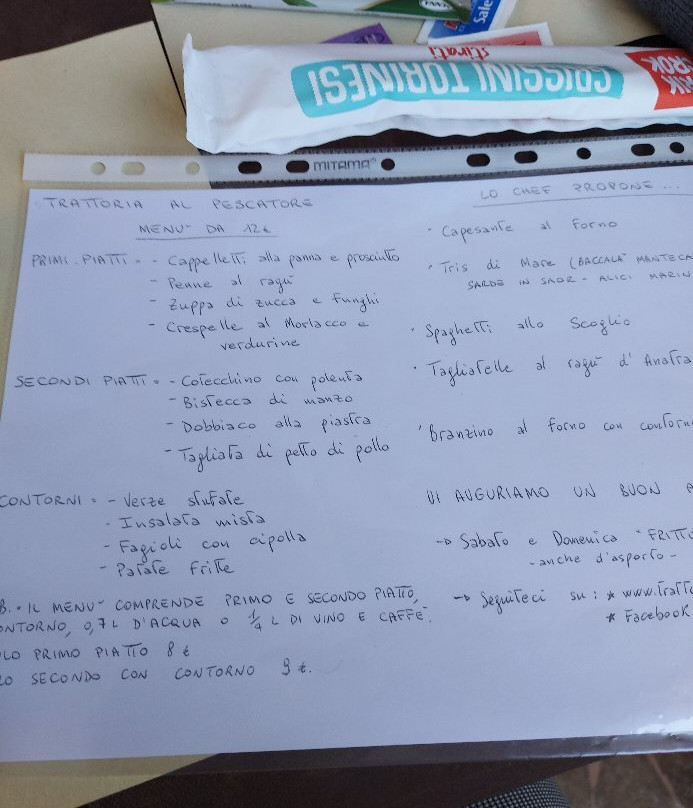 Sale
GRISSINI TORINESI
stirati
MITAMA
TRATTORIA AL PESCATORE
MENU' DA 12€
PRIMI PIATTI = - Cappelletti alla panna e prosciutto
- Penne al ragù
- Zuppa di zucca e funghi
- Crespelle al Morlacco e
verdurine
SECONDI PIATTI = - Cotecchino con polenta
- Bistecca di manzo
- Dobbiaco alla piastra
- Tagliata di petto di pollo
CONTORNI = - Verze stufate
- Insalata mista
- Fagioli con cipolla
- Patate fritte
B. - IL MENU' COMPRENDE PRIMO E SECONDO PIATTO,
ONTORNO, 0,7 L D'ACQUA O 1/4 L DI VINO E CAFFE'.
LO PRIMO PIATTO 8 €
LO SECONDO CON CONTORNO 9 €.
LO CHEF PROPONE ...
· Capesante al forno
· Tris di Mare (BACCALA' MANTECA
SARDE IN SAOR - ALICI MARIN
· Spaghetti allo Scoglio
· Tagliatelle al ragù d'Anatra
· Branzino al forno con contorn
VI AUGURIAMO UN BUON
→ Sabato e Domenica "FRITTO
- anche d'asporto -
→ Seguiteci su: * www.Tratto
* Facebook